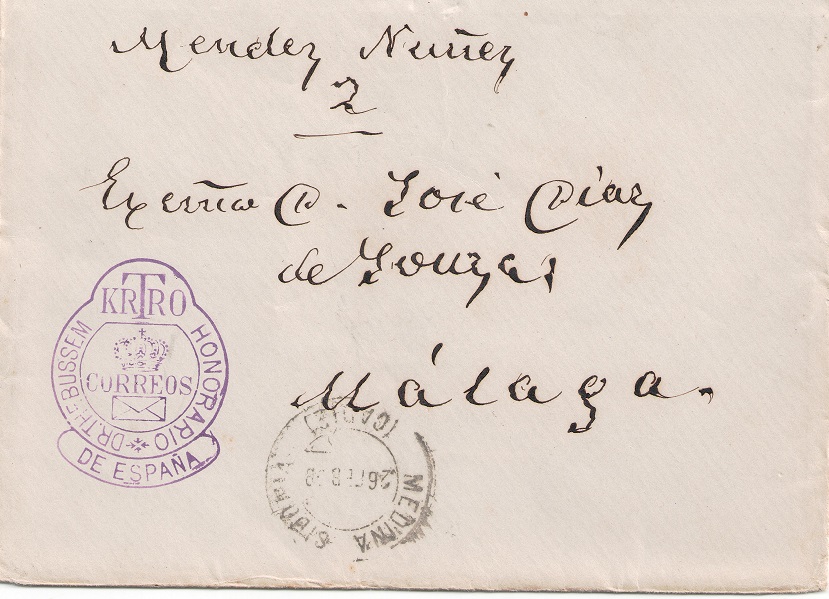 Mendez Nuñez
2
Excmo D. José Díaz
de Souzas
Málaga.
KRTRO
HONORARIO
DR. THEBUSSEM
CORREOS
DE ESPAÑA
MEDINA SIDONIA
(CADIZ)